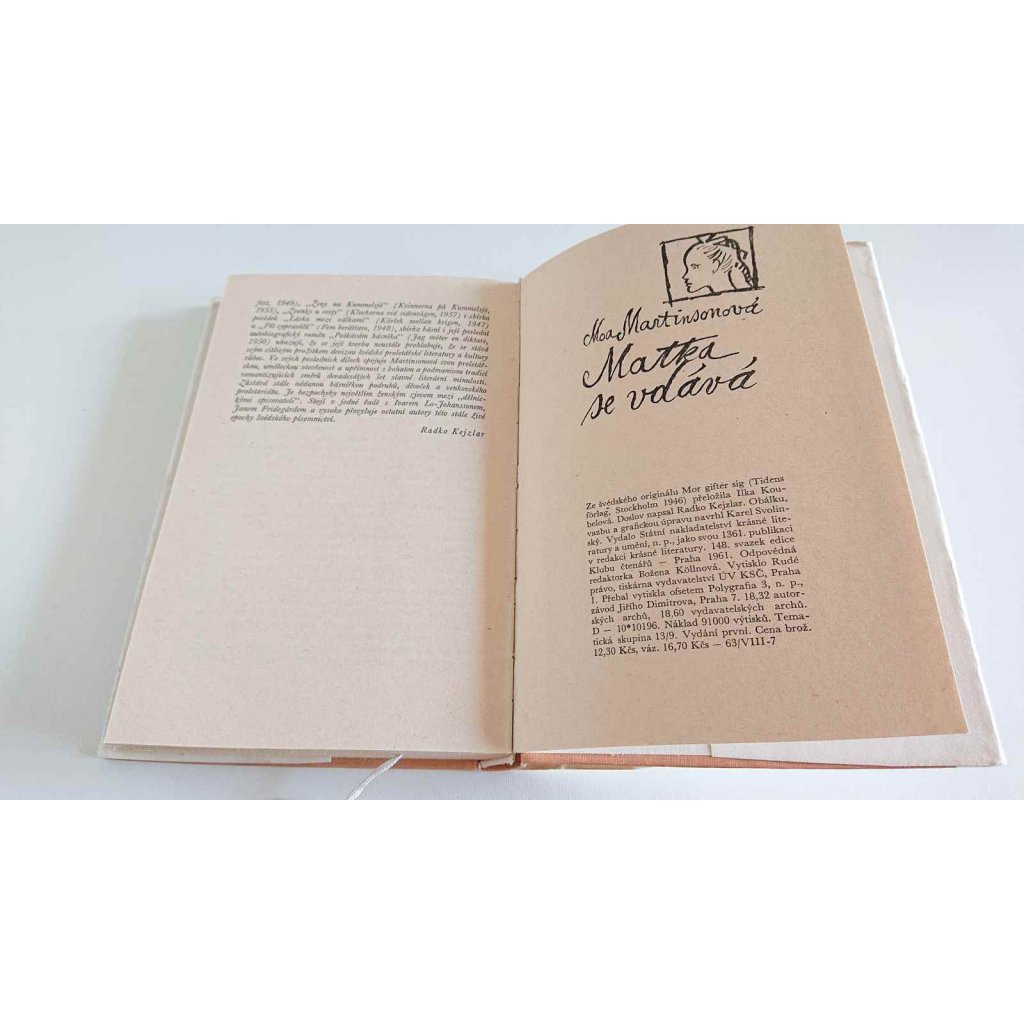 fest, 1949), „Ženy na Kummelsjö“ (Kvinnorna på Kummelsjö,
1955), „Zvonky u cesty“ (Klockorna vid sidenvägen, 1957) i sbírka
povídek „Láska mezi válkami“ (Kärlek mellan krigen, 1947)
a „Pět vypravěčů“ (Fem berättare, 1948), sbírka básní i její poslední
autobiografický román „Potkávám básníka“ (Jag möter en diktare,
1950) ukazují, že se její tvorba neustále prohlubuje, že se stává
svým citlivým prožitkem devizou švédské proletářské literatury a kultury
vůbec. Ve svých posledních dílech spojuje Martinsonová svou proletář-
skou, uměleckou otevřenost a upřímnost s bohatou a podmanivou tradicí
romantizujících směrů devadesátých let slavné literární minulosti.
Zůstává stále oddanou básnířkou podruhů, děveček a venkovského
proletariátu. Je bezpochyby největším ženským zjevem mezi „dělnic-
kými spisovateli“. Stojí v jedné řadě s Ivarem Lo-Johanssonem,
Janem Fridegårdem a vysoko převyšuje ostatní autory této stále živé
epochy švédského písemnictví.
Radko Kejzlar
Moa Martinsonová
Matka
se vdává
Ze švédského originálu Mor gifter sig (Tidens
förlag, Stockholm 1946) přeložila Ilka Kou-
belová. Doslov napsal Radko Kejzlar. Obálku,
vazbu a grafickou úpravu navrhl Karel Svolin-
ský. Vydalo Státní nakladatelství krásné lite-
ratury a umění, n. p., jako svou 1361. publikaci
v redakci krásné literatury. 148. svazek edice
Klubu čtenářů — Praha 1961. Odpovědná
redaktorka Božena Köllnová. Vytisklo Rudé
právo, tiskárna vydavatelství ÚV KSČ, Praha
1. Přebal vytiskla ofsetem Polygrafia 3, n. p.,
závod Jiřího Dimitrova, Praha 7. 18,32 autor-
ských archů, 18,60 vydavatelských archů.
D — 10*10196. Náklad 91000 výtisků. Tema-
tická skupina 13/9. Vydání první. Cena brož.
12,30 Kčs, váz. 16,70 Kčs — 63/VIII-7